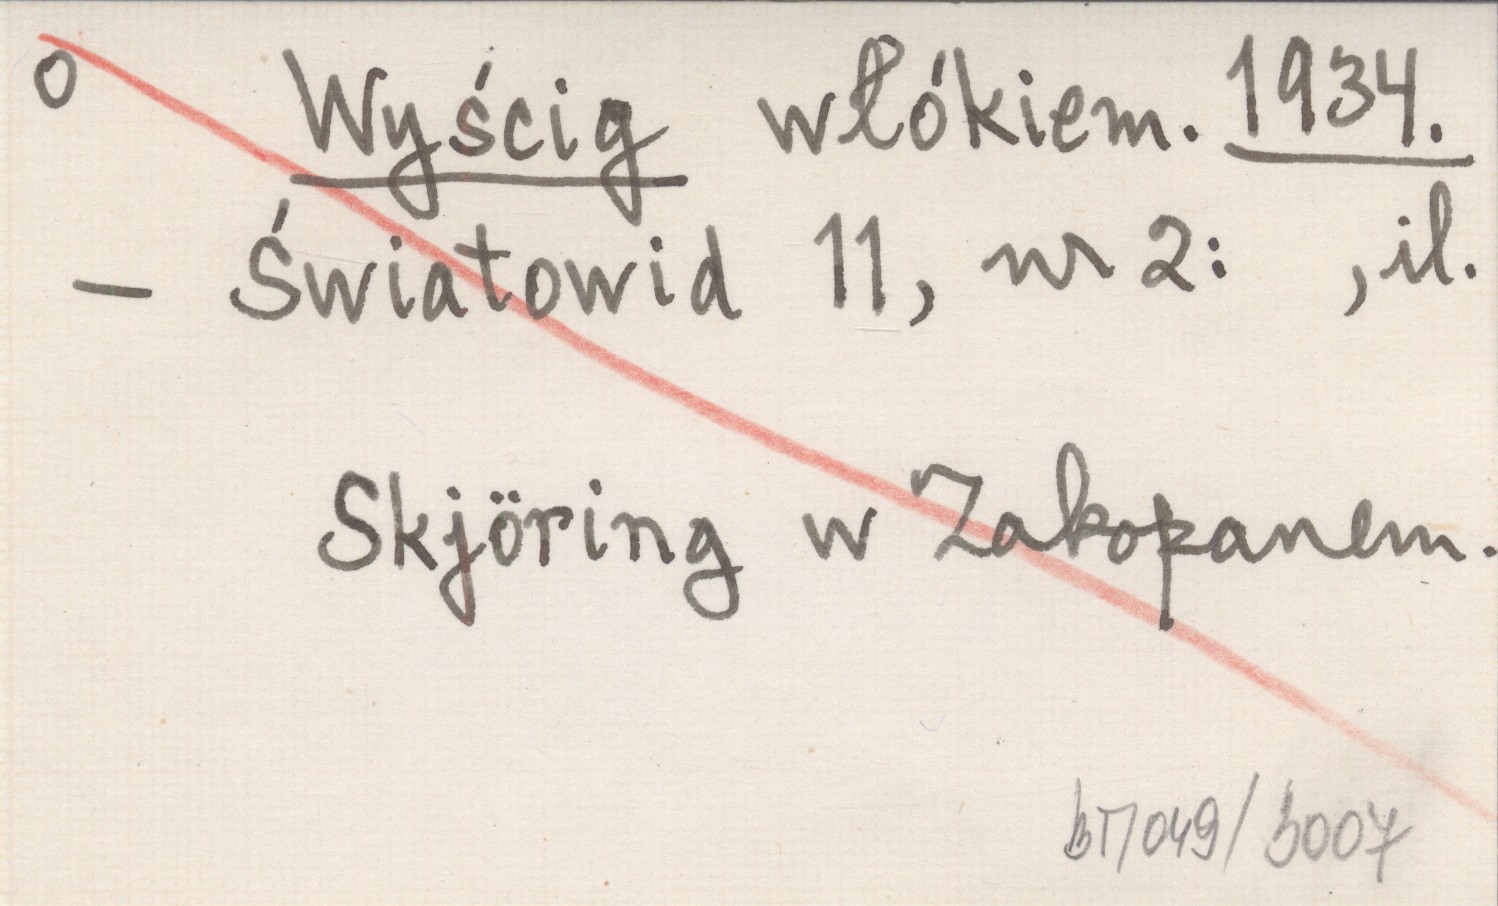 o Wyścig włókiem. 1934.
— Światowid 11, nr 2: , il.
Skjöring w Zakopanem.